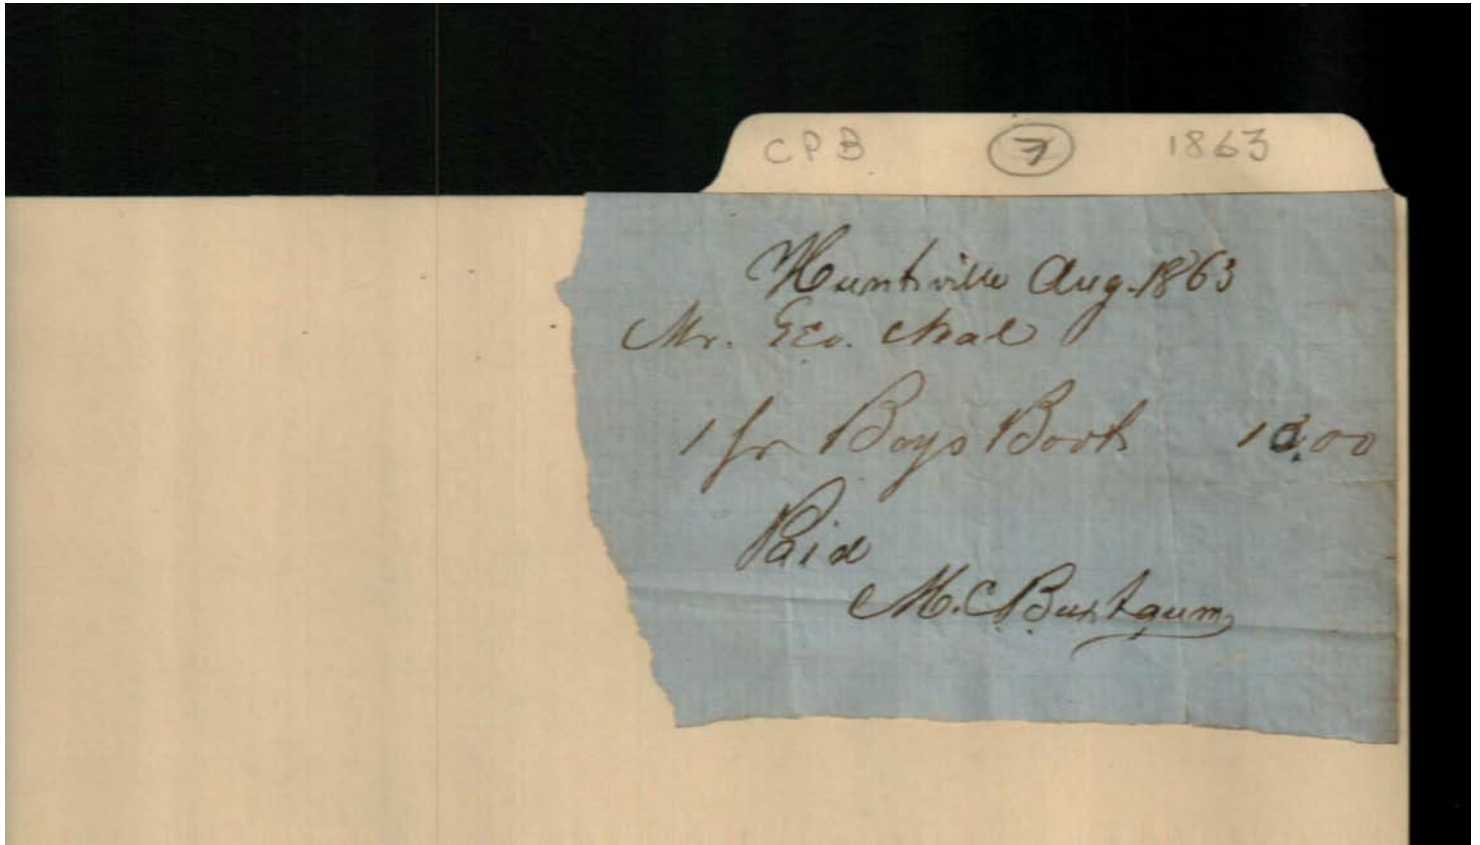 CPB 7 1863
Huntville Aug. 1863
Mr. Geo. Neal
1 pr Boys Boots 10.00
Paid
M. C.